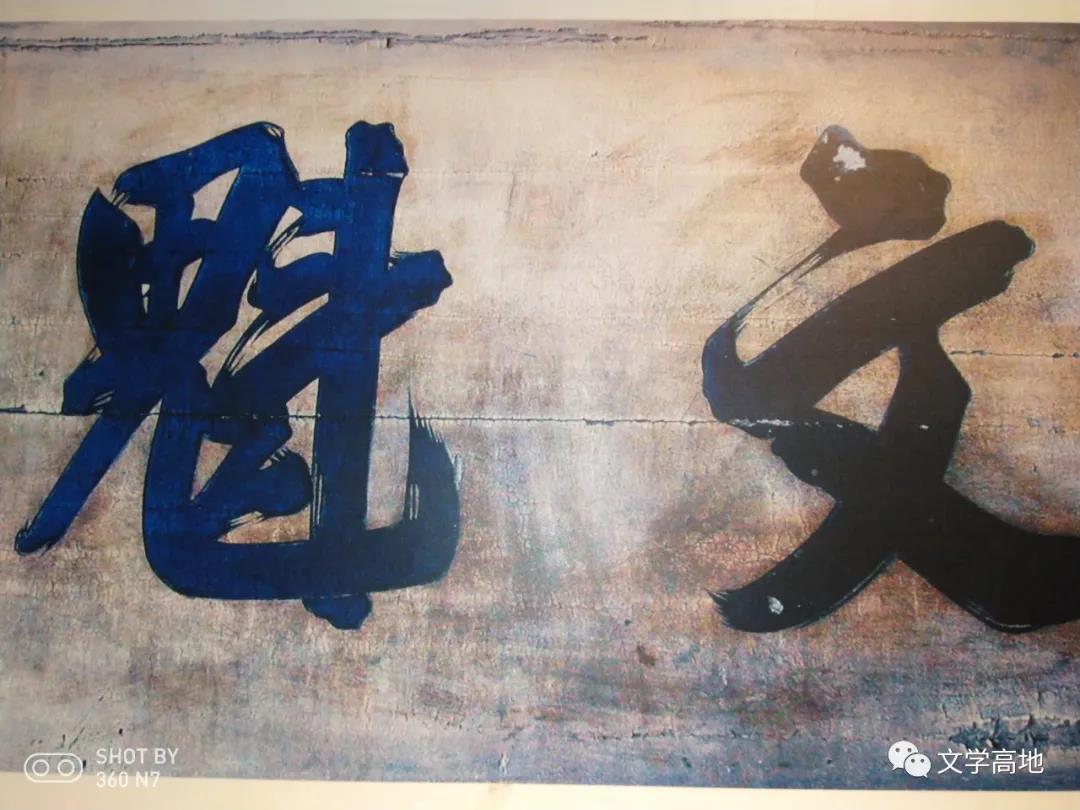 文魁
SHOT BY
360 N7
文学高地